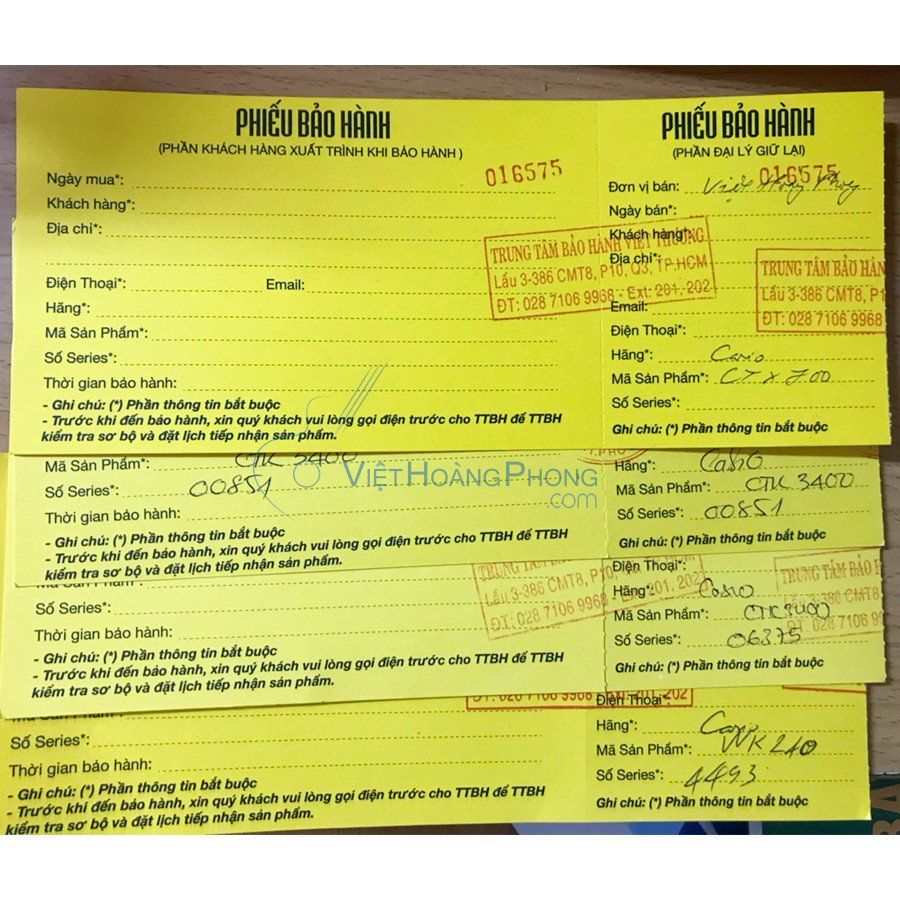 PHIẾU BẢO HÀNH
(PHẦN KHÁCH HÀNG XUẤT TRÌNH KHI BẢO HÀNH)
016575
Ngày mua*:
Khách hàng*:
Địa chỉ*:
Điện Thoại*: Email:
Hãng*:
Mã Sản Phẩm*:
Số Series*:
Thời gian bảo hành:
- Ghi chú: (*) Phần thông tin bắt buộc
- Trước khi đến bảo hành, xin quý khách vui lòng gọi điện trước cho TTBH để TTBH
kiểm tra sơ bộ và đặt lịch tiếp nhận sản phẩm.
TRUNG TÂM BẢO HÀNH VIỆT THƯƠNG
Lầu 3-386 CMT8, P10, Q3, TP.HCM
ĐT: 028 7106 9968 - Ext: 201, 202
PHIẾU BẢO HÀNH
(PHẦN ĐẠI LÝ GIỮ LẠI)
016575
Đơn vị bán: Việt Hoàng Phong
Ngày bán*:
Khách hàng*:
Địa chỉ*:
Email:
Điện Thoại*:
Hãng*: Casio
Mã Sản Phẩm*: CT X 700
Số Series*:
Ghi chú: (*) Phần thông tin bắt buộc
TRUNG TÂM BẢO HÀN
Lầu 3-386 CMT8, P1
ĐT: 028 7106 9968
VIỆTHOÀNGPHONG
.com
Mã Sản Phẩm*: CTK 3400
Số Series*: 00851
Thời gian bảo hành:
- Ghi chú: (*) Phần thông tin bắt buộc
- Trước khi đến bảo hành, xin quý khách vui lòng gọi điện trước cho TTBH để TTBH
kiểm tra sơ bộ và đặt lịch tiếp nhận sản phẩm.
Hãng*: Casio
Mã Sản Phẩm*: CTK 3400
Số Series*: 00851
Ghi chú: (*) Phần thông tin bắt buộc
Mã Sản Phẩm*:
Số Series*:
Thời gian bảo hành:
- Ghi chú: (*) Phần thông tin bắt buộc
- Trước khi đến bảo hành, xin quý khách vui lòng gọi điện trước cho TTBH để TTBH
kiểm tra sơ bộ và đặt lịch tiếp nhận sản phẩm.
Lầu 3-386 CMT8, P10
ĐT: 028 7106 9968 - Ext: 201, 202
Điện Thoại*:
Hãng*: Casio
Mã Sản Phẩm*: CTK3400
Số Series*: 06375
Ghi chú: (*) Phần thông tin bắt buộc
TRUNG TÂM BẢO
Lầu 3-386 CMT8
ĐT: 028 7106 99
Mã Sản Phẩm*:
Số Series*:
Thời gian bảo hành:
- Ghi chú: (*) Phần thông tin bắt buộc
- Trước khi đến bảo hành, xin quý khách vui lòng gọi điện trước cho TTBH để TTBH
kiểm tra sơ bộ và đặt lịch tiếp nhận sản phẩm.
ĐT: 028 7106 9968 - Ext: 201, 202
Điện Thoại*:
Hãng*: Casio
Mã Sản Phẩm*: WK 240
Số Series*: 4493
Ghi chú: (*) Phần thông tin bắt buộc